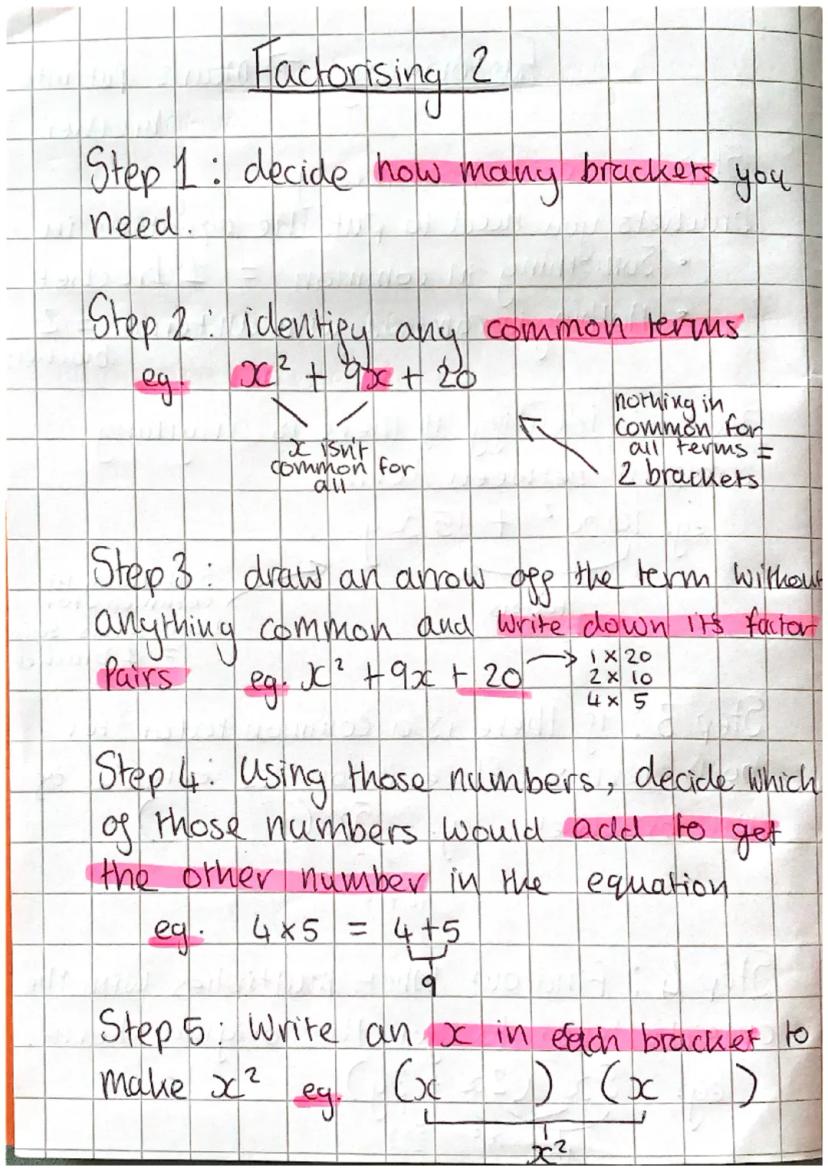 Factorising 2
Step 1 : decide how many brackets you
need.
Step 2 : identify any common terms
eg. x² + 9x + 20
x isn't
common for
all
nothing in
common for
all terms =
2 brackets
Step 3 : draw an arrow off the term without
anything common and write down its factor
pairs eg. x² + 9x + 20 → 1 × 20
2 × 10
4 × 5
Step 4 : Using those numbers, decide which
of those numbers would add to get
the other number in the equation
eg. 4 × 5 = 4 + 5
9
Step 5 : Write an x in each bracket to
make x² eg. (x ) (x )
x²